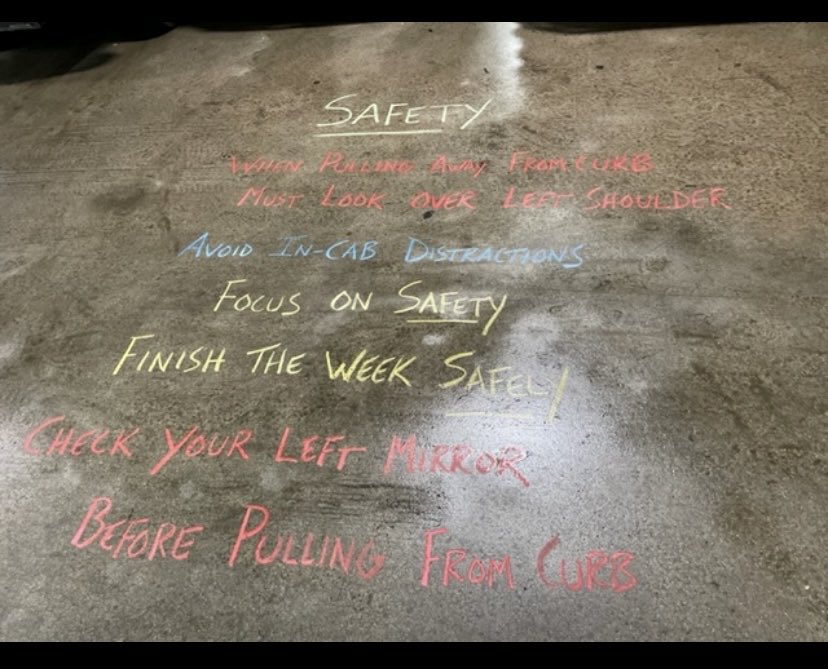 SAFETY
WHEN PULLING AWAY FROM CURB
MUST LOOK OVER LEFT SHOULDER
AVOID IN-CAB DISTRACTIONS
FOCUS ON SAFETY
FINISH THE WEEK SAFELY
CHECK YOUR LEFT MIRROR
BEFORE PULLING FROM CURB